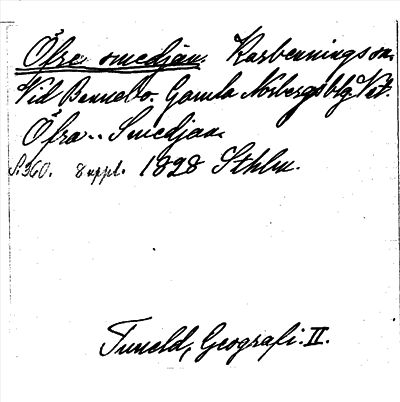 Öfre smedjan. Karbennings sn.
Vid Bennebo. Gamla Norbergs bg. Vstm.
Öfra.. Smedjan.
S. 360. 8 uppl. 1828 Sthlm.
Tuneld, Geografi. II.